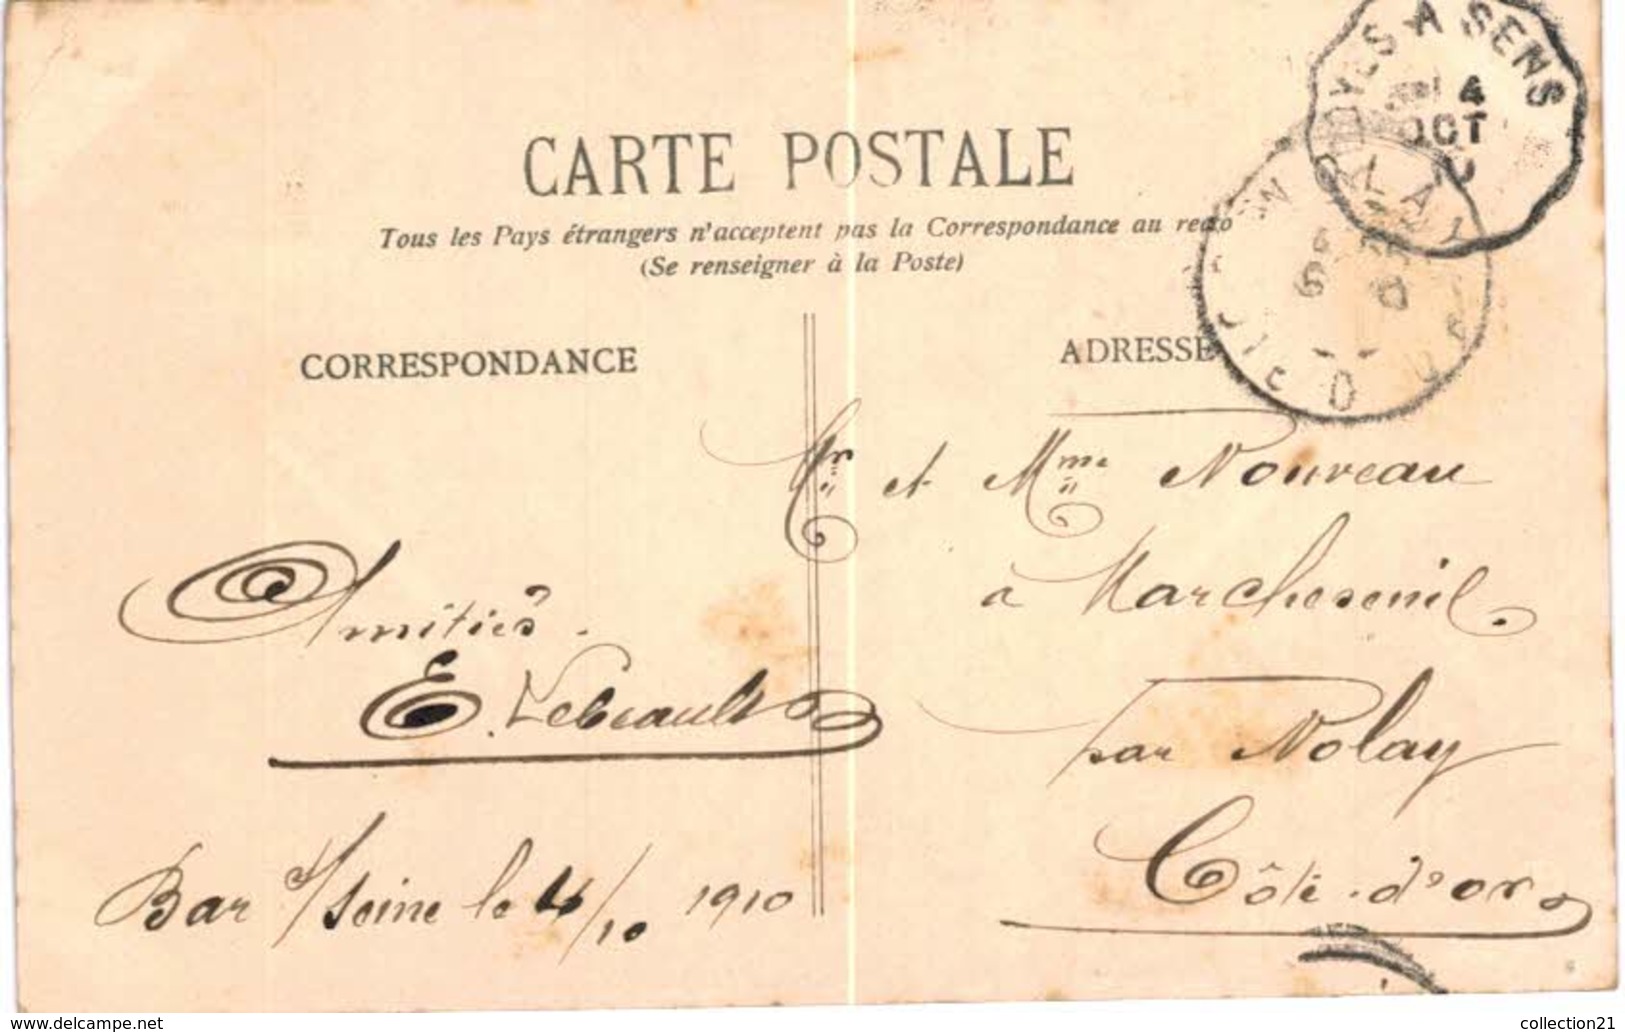 CARTE POSTALE
Tous les Pays étrangers n'acceptent pas la Correspondance au recto
(Se renseigner à la Poste)
CORRESPONDANCE
ADRESSE
A SENS
4
OCT
Mr et Mme Nouveau
à Marcheseuil
par Nolay
Côte-d'or
Amitiés.
E. Lebeault
Bar s/Seine le 4/10 1910
www.delcampe.net
collection21